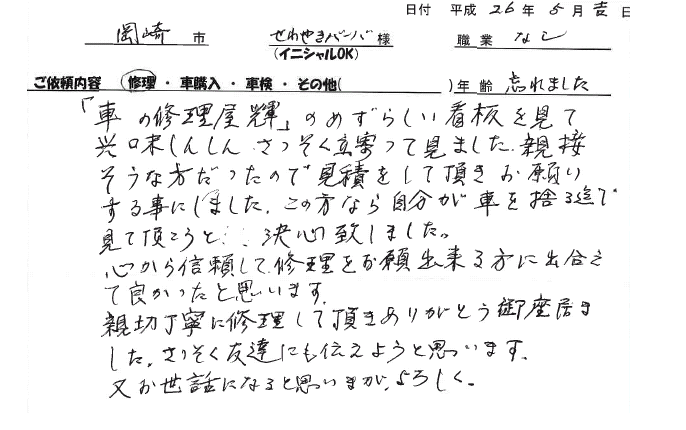 日付 平成 26 年 5 月 吉 日
岡崎 市 せわやきバーバ 様 職業 なし
(イニシャルOK)
ご依頼内容 修理・車購入・車検・その他( )年齢 忘れました
「車の修理屋輝」のめずらしい看板を見て
興味しんしん さっそく立寄って見ました。親接
そうな方だったので見積をして頂きお願い
する事にしました。この方なら自分が車を捨る迄
見て頂こうと…決心致しました。
心から信頼して修理をお願出来る方に出合え
て良かったと思います。
親切丁寧に修理して頂きありがとう御座居ま
した。さっそく友達にも伝えようと思います。
又お世話になると思いまが、よろしく。